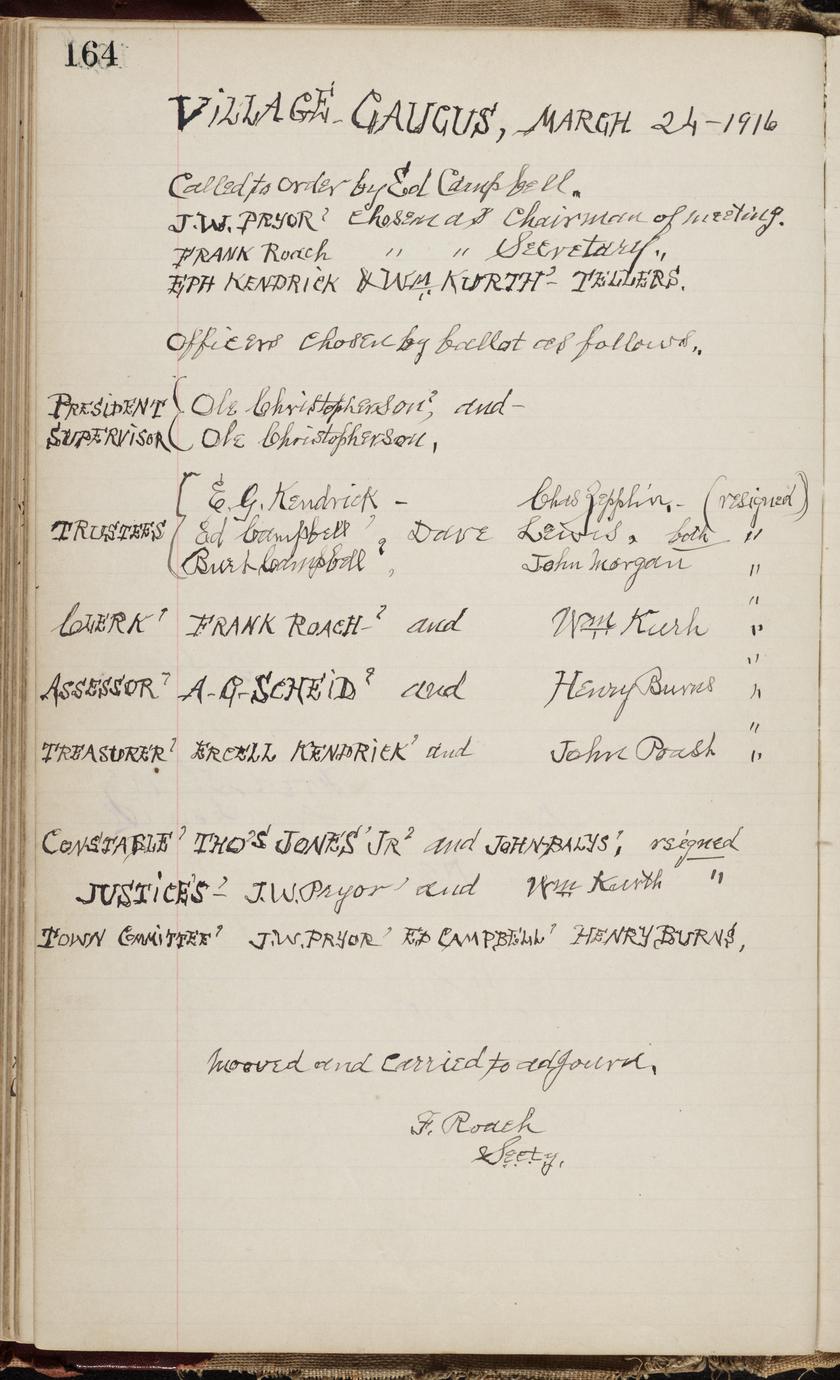 164
VILLAGE - CAUCUS, MARCH 24 - 1916
Called to order by Ed Campbell.
J.W. PRYOR' chosen as Chairman of meeting.
FRANK Roach " " Secretary.,
EPH KENDRICK & Wm KURTH'- TELLERS.
Officers chosen by ballot as follows.,
PRESIDENT Ole Christopherson', and -
SUPERVISOR Ole Christopherson,
E.G. Kendrick - Chas Zepplin. - (resigned)
TRUSTEES Ed Campbell', Dave Lewis. both "
Burt Campbell', John Morgan "
"
CLERK' FRANK ROACH-' and Wm Kurh "
"
ASSESSOR' A-G-SCHEID' and Henry Burns "
"
TREASURER' ERCELL KENDRICK' and John Prash "
CONSTABLE' THO'S JONES' JR' and JOHN-BALYS', resigned
JUSTICE'S'- J.W. Pryor' and Wm Kurth "
TOWN COMMITTEE' J.W. PRYOR' ED CAMPBELL' HENRY BURNS,
Mooved and Carried to adjourd.
F. Roach
Secty.